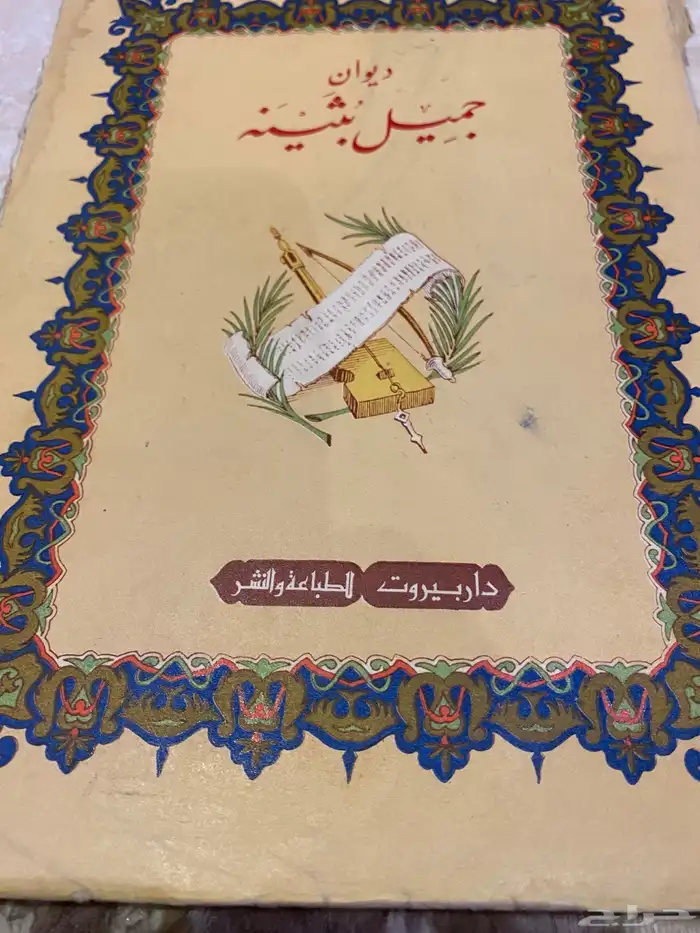 ديوان
جميل بثينه
دار بيروت للطباعة والنشر
حراج